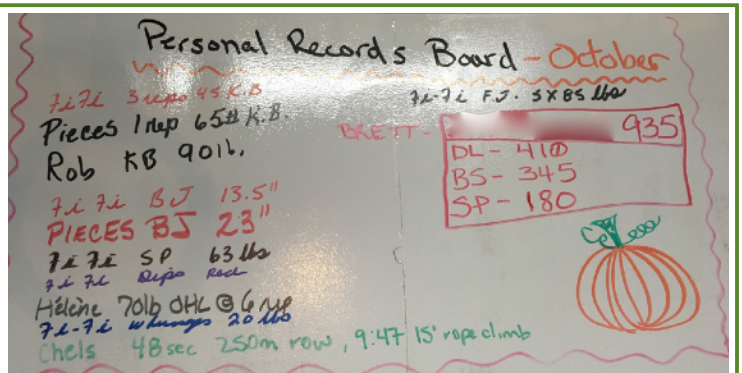 Personal Records Board - October
FiFi 3 reps 45 K.B
Pieces 1 rep 65# K.B.
Rob KB 90lb.
Fi Fi BJ 13.5"
PIECES BJ 23"
Fi Fi SP 63 lbs
Fi Fi Dips Red
Hélène 70lb OHL @ 6 rep
Fi-Fi w lunges 20 lbs
Chels 48 sec 250m row, 9:47 15' rope climb
Fi-Fi F.J. 5X85 lbs
BRETT - 935
DL - 410
BS - 345
SP - 180